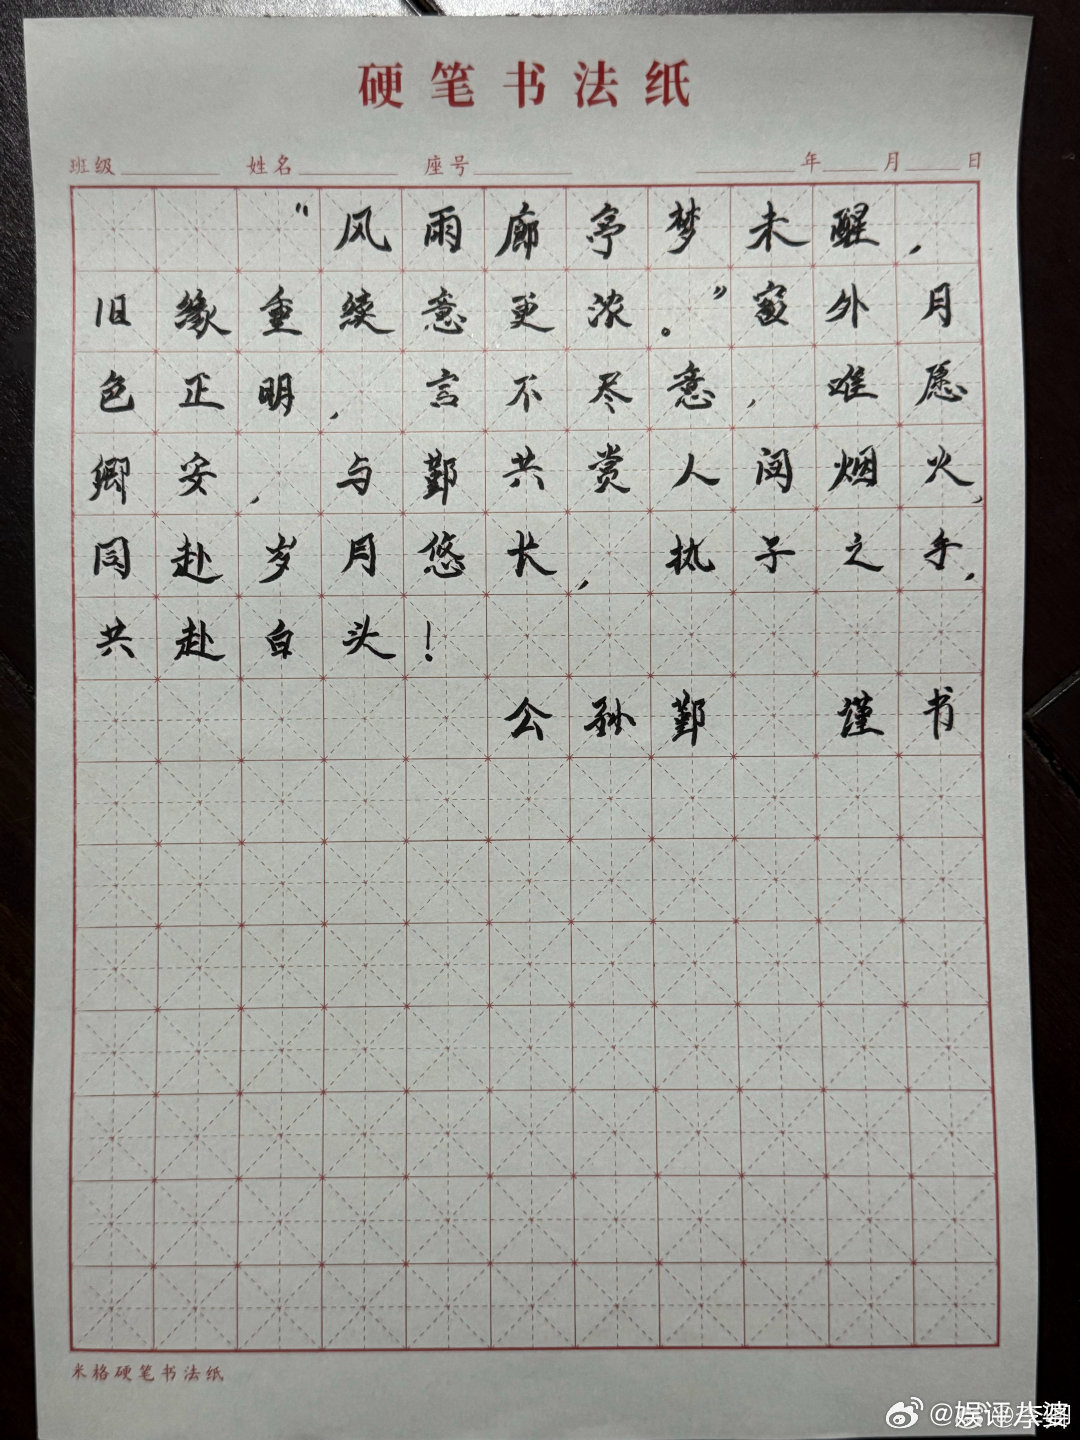 硬笔书法纸
班级 姓名 座号 年 月 日
“风雨廊亭梦未醒，
旧缘重续意更浓。”窗外月
色正明，言不尽意，难愿
卿安，与鄞共赏人间烟火，
同赴岁月悠长，执子之手，
共赴白头！
公孙鄞 谨书
米格硬笔书法纸
@娱评李婆